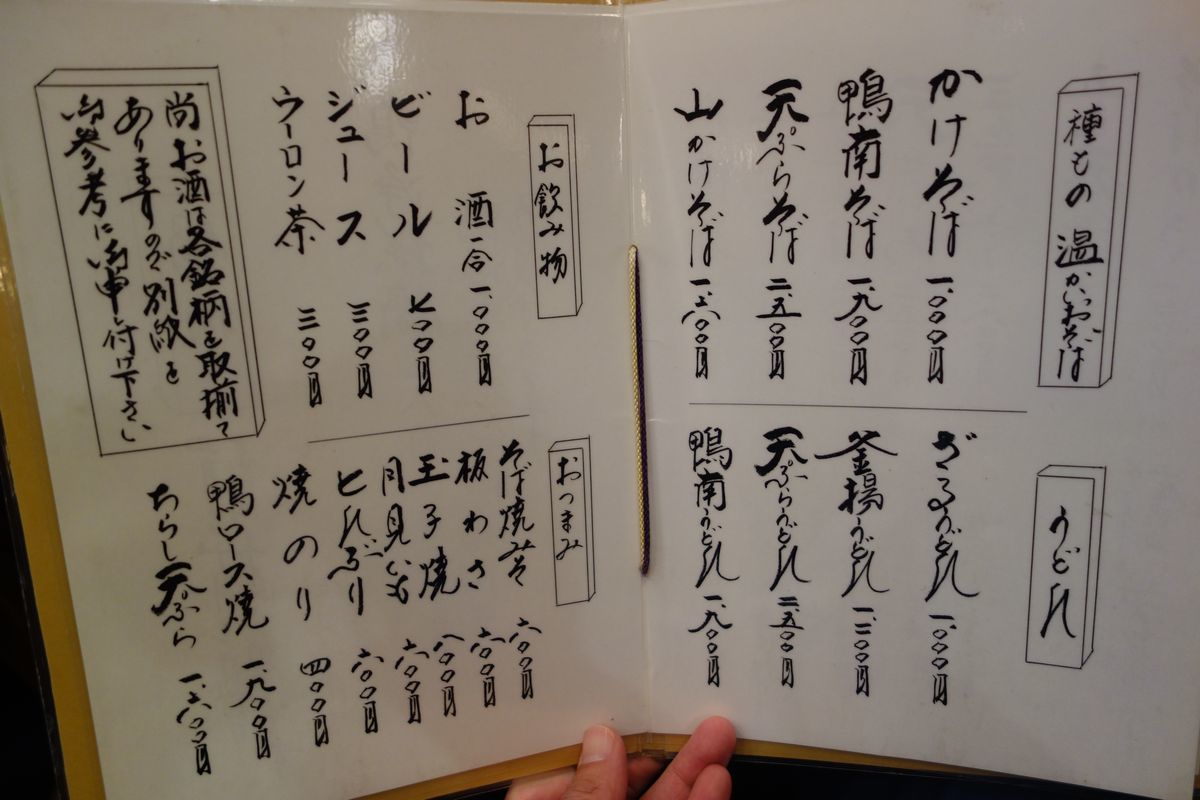 種もの 温かいおそば
かけそば 一、〇〇〇円
鴨南そば 一、九〇〇円
天ぷらそば 二、五〇〇円
山かけそば 一、六〇〇円
うどん
ざるうどん 一、〇〇〇円
釜揚うどん 一、二〇〇円
天ぷらうどん 二、五〇〇円
鴨南うどん 一、九〇〇円
お飲み物
お酒 一合 一、〇〇〇円
ビール 七〇〇円
ジュース 三〇〇円
ウーロン茶 三〇〇円
尚お酒は各銘柄を取揃て
ありますので別紙を
御参考に御申し付け下さい
おつまみ
そば焼みそ 六〇〇円
板わさ 六〇〇円
玉子焼 八〇〇円
月見いも 六〇〇円
ヒたぶり 六〇〇円
焼のり 四〇〇円
鴨ロース焼 一、九〇〇円
ちらし天ぷら 一、六〇〇円